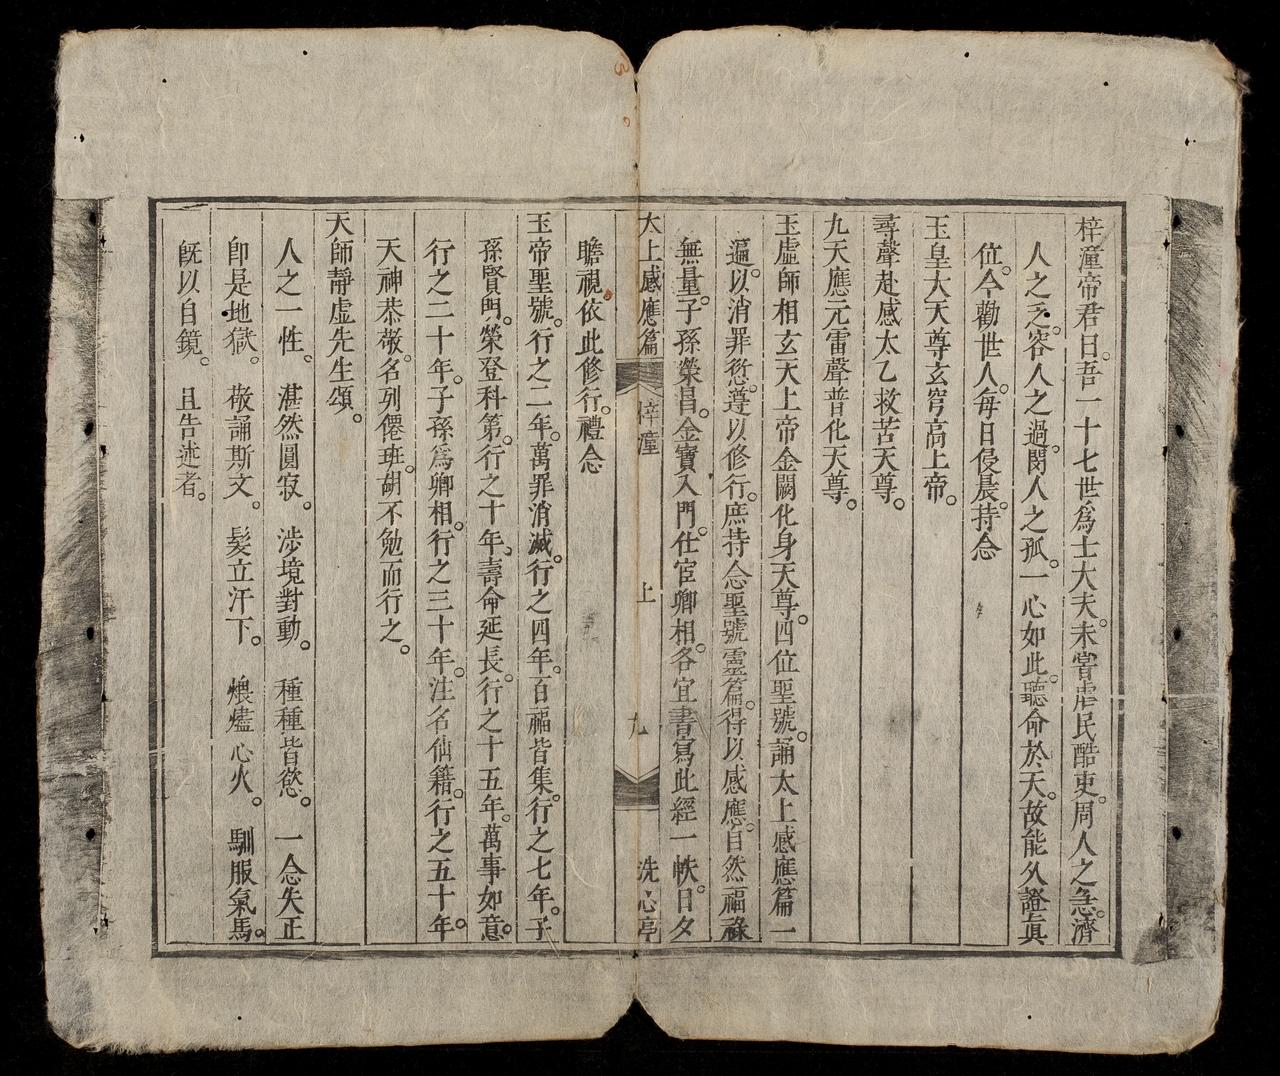 梓潼帝君曰。吾一十七世爲士大夫。未嘗虐民酷吏。周人之急。濟
人之乏。容人之過。閔人之孤。一心如此。聽命於天。故能久證眞
位。今勸世人。每日侵晨。持念
玉皇大天尊玄穹高上帝。
尋聲赴感太乙救苦天尊。
九天應元雷聲普化天尊。
玉虛師相玄天上帝金闕化身天尊。四位聖號。誦太上感應篇一
遍。以消罪愆。遵以修行。庶持念聖號靈篇。得以感應。自然福祿
無量。子孫榮昌。金寶入門。仕宦卿相。各宜書寫此經一帙。日夕
太上感應篇 梓潼 上 九 洗心亭
瞻視。依此修行。禮念
玉帝聖號。行之二年。萬罪消滅。行之四年。百福皆集。行之七年。子
孫賢閗。榮登科第。行之十年。壽命延長。行之十五年。萬事如意。
行之二十年。子孫爲卿相。行之三十年。注名仙籍。行之五十年。
天神恭敬。名列僊班。胡不勉而行之。
天師靜虛先生頌。
人之一性。湛然圓寂。涉境對動。種種皆慾。一念失正
卽是地獄。敬誦斯文。髮立汗下。煨燼心火。馴服氣馬。
旣以自鏡。且告迷者。